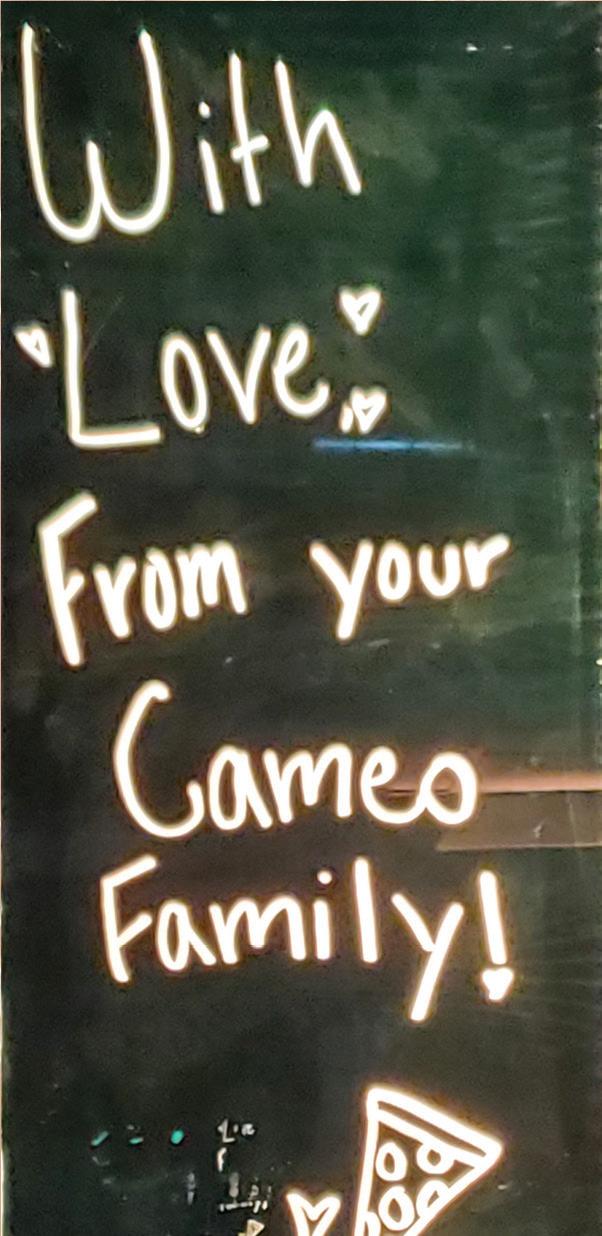 With
Love,
From your
Cameo
Family!